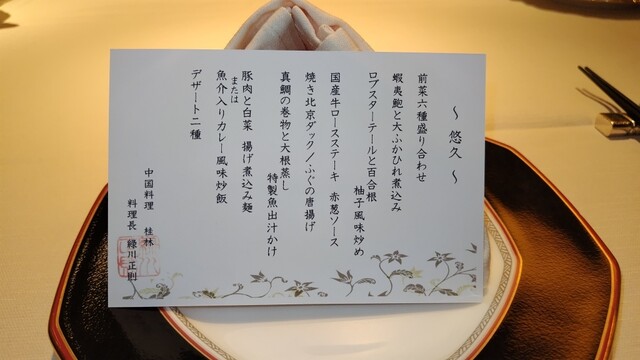 ～ 悠久 ～
前菜六種盛り合わせ
蝦夷鮑と大ふかひれ煮込み
ロブスターテールと百合根
柚子風味炒め
国産牛ロースステーキ 赤葱ソース
焼き北京ダック／ふぐの唐揚げ
真鯛の巻物と大根蒸し
特製魚出汁かけ
豚肉と白菜 揚げ煮込み麺
または
魚介入りカレー風味炒飯
デザート二種
中国料理 桂林
料理長 緑川正則